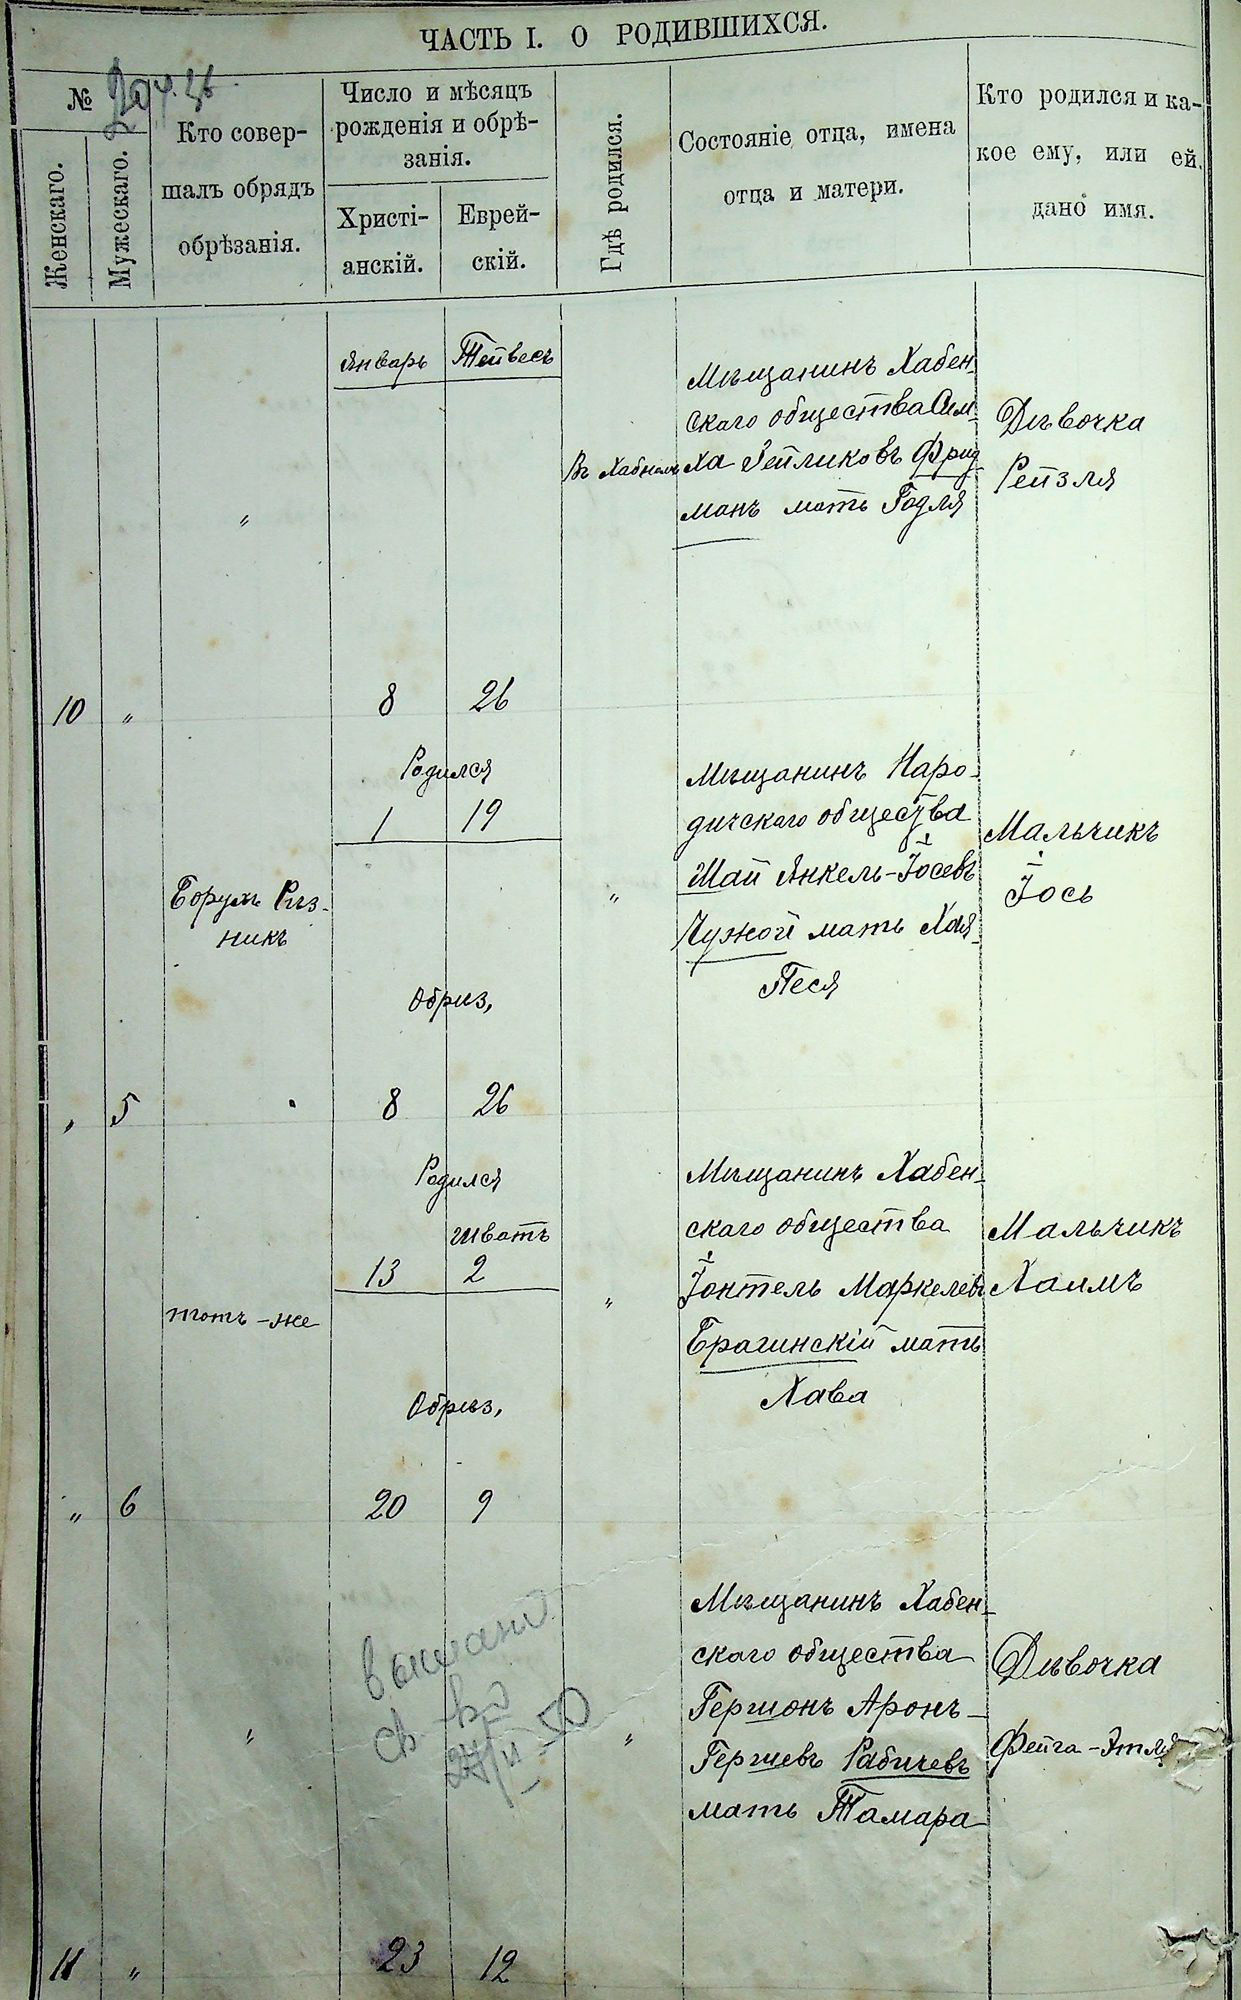 ЧАСТЬ I. О РОДИВШИХСЯ.
№
Женскаго.
Мужескаго.
Кто совер-
шалъ обрядъ
обрѣзанія.
Число и мѣсяцъ
рожденія и обрѣ-
занія.
Христі-
анскій.
Еврей-
скій.
Гдѣ родился.
Состояніе отца, имена
отца и матери.
Кто родился и ка-
кое ему, или ей,
дано имя.
Январь Тейвесъ
Мѣщанинъ Хабен-
скаго общества Сим-
ха Зейликовъ Фрид
манъ мать Годля
въ Хабномъ
Дѣвочка
Рейзля
"
10 " 8 26
Родился
1 19
Борухъ Рѣз-
никъ
Обрѣз,
"
Мѣщанинъ Наро-
дичскаго общества
Шай Янкель-Іосевъ
Чужой мать Хая-
Песя
Мальчикъ
Іось
" 5 8 26
Родился
Шватъ
13 2
тотъ-же
Обрѣз,
"
Мѣщанинъ Хабен-
скаго общества
Іонтель Маркелев
Брагинскій мать
Хава
Мальчикъ
Хаимъ
" 6 20 9
"
"
Мѣщанинъ Хабен-
скаго общества
Гершонъ Аронъ-
Гершевъ Рабичевъ
мать Тамара
Дѣвочка
Фейга-Этля
11 " 23 12